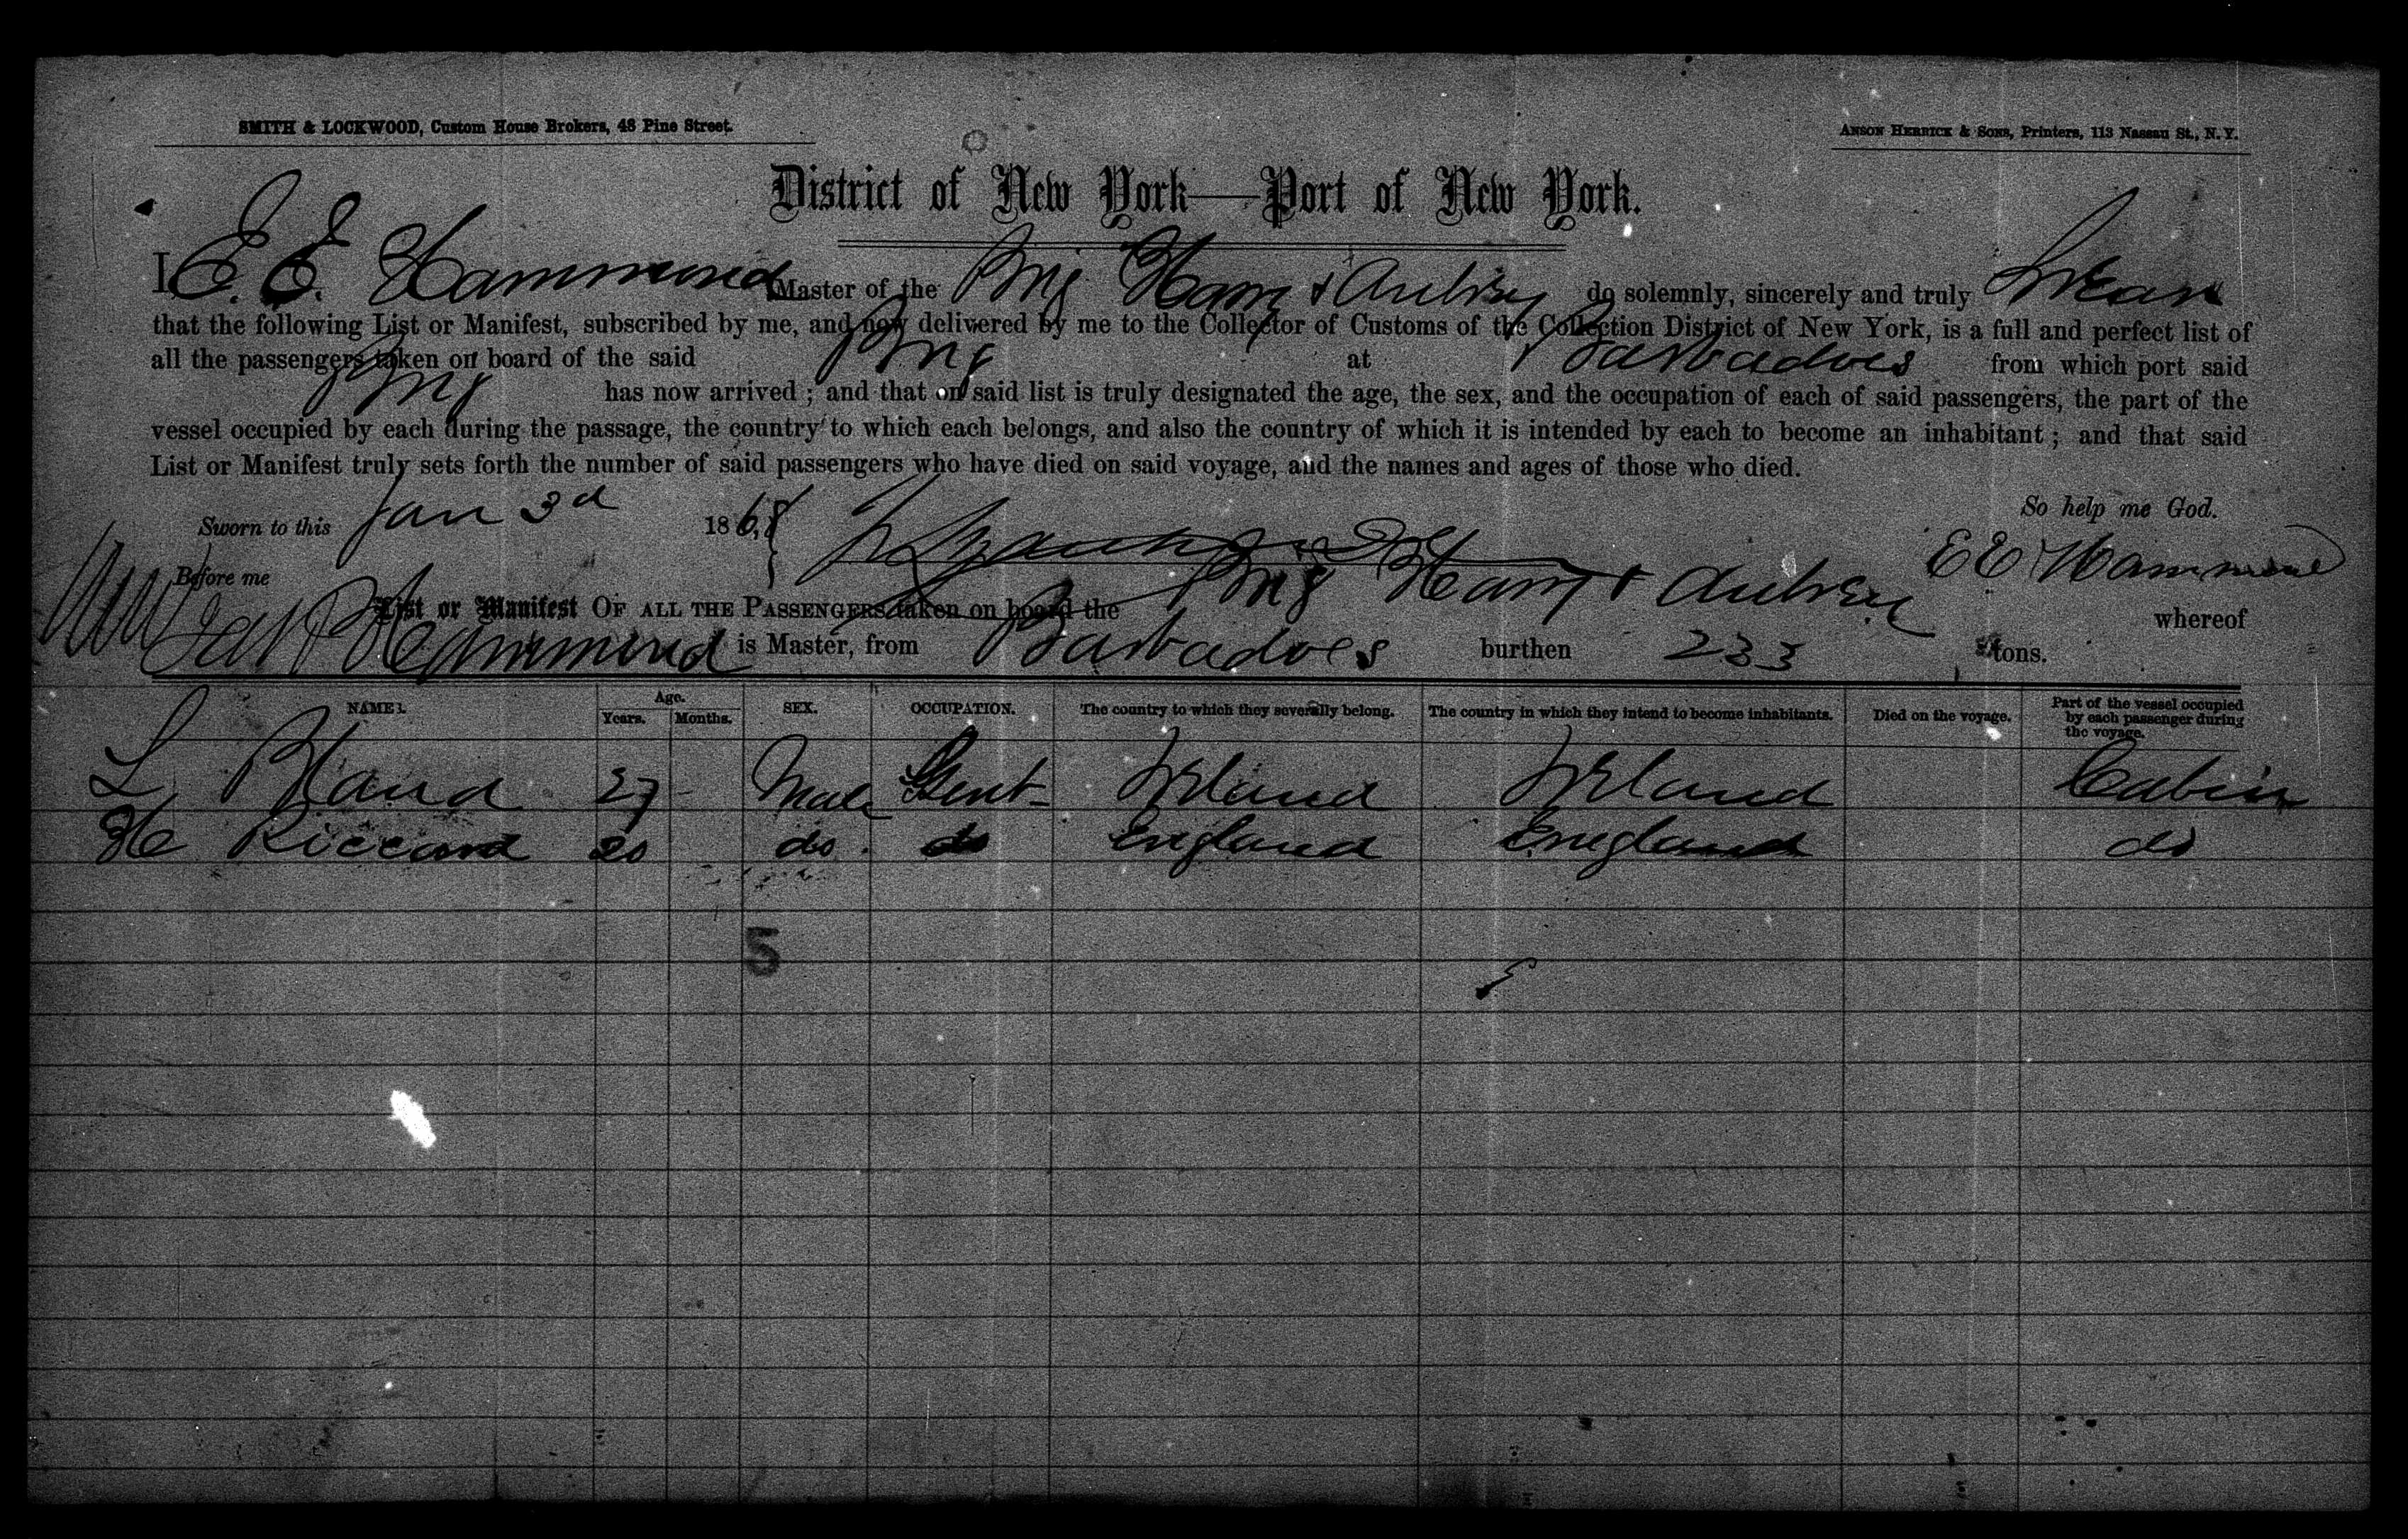 SMITH & LOCKWOOD, Custom House Brokers, 48 Pine Street.
ANSON HERRICK & SONS, Printers, 113 Nassau St., N.Y.
District of New York—Port of New York.
I, E. E. Hammond Master of the Brig Harry & Aubrey do solemnly, sincerely and truly Swear
that the following List or Manifest, subscribed by me, and now delivered by me to the Collector of Customs of the Collection District of New York, is a full and perfect list of
all the passengers taken on board of the said Brig at Barbadoes from which port said
Brig has now arrived; and that on said list is truly designated the age, the sex, and the occupation of each of said passengers, the part of the
vessel occupied by each during the passage, the country to which each belongs, and also the country of which it is intended by each to become an inhabitant; and that said
List or Manifest truly sets forth the number of said passengers who have died on said voyage, and the names and ages of those who died.
So help me God.
Sworn to this Jan 3d 1868
E E Hammond
Before me
List or Manifest OF ALL THE PASSENGERS taken on board the Brig Harry & Aubrey whereof
Hammond is Master, from Barbadoes burthen 233 tons.
NAMES. Age. Years. Months. SEX. OCCUPATION. The country to which they severally belong. The country in which they intend to become inhabitants. Died on the voyage. Part of the vessel occupied by each passenger during the voyage.
L Bland 27 - Male Gent- Ireland Ireland Cabin
H Riccard 20 do. do England England do
5